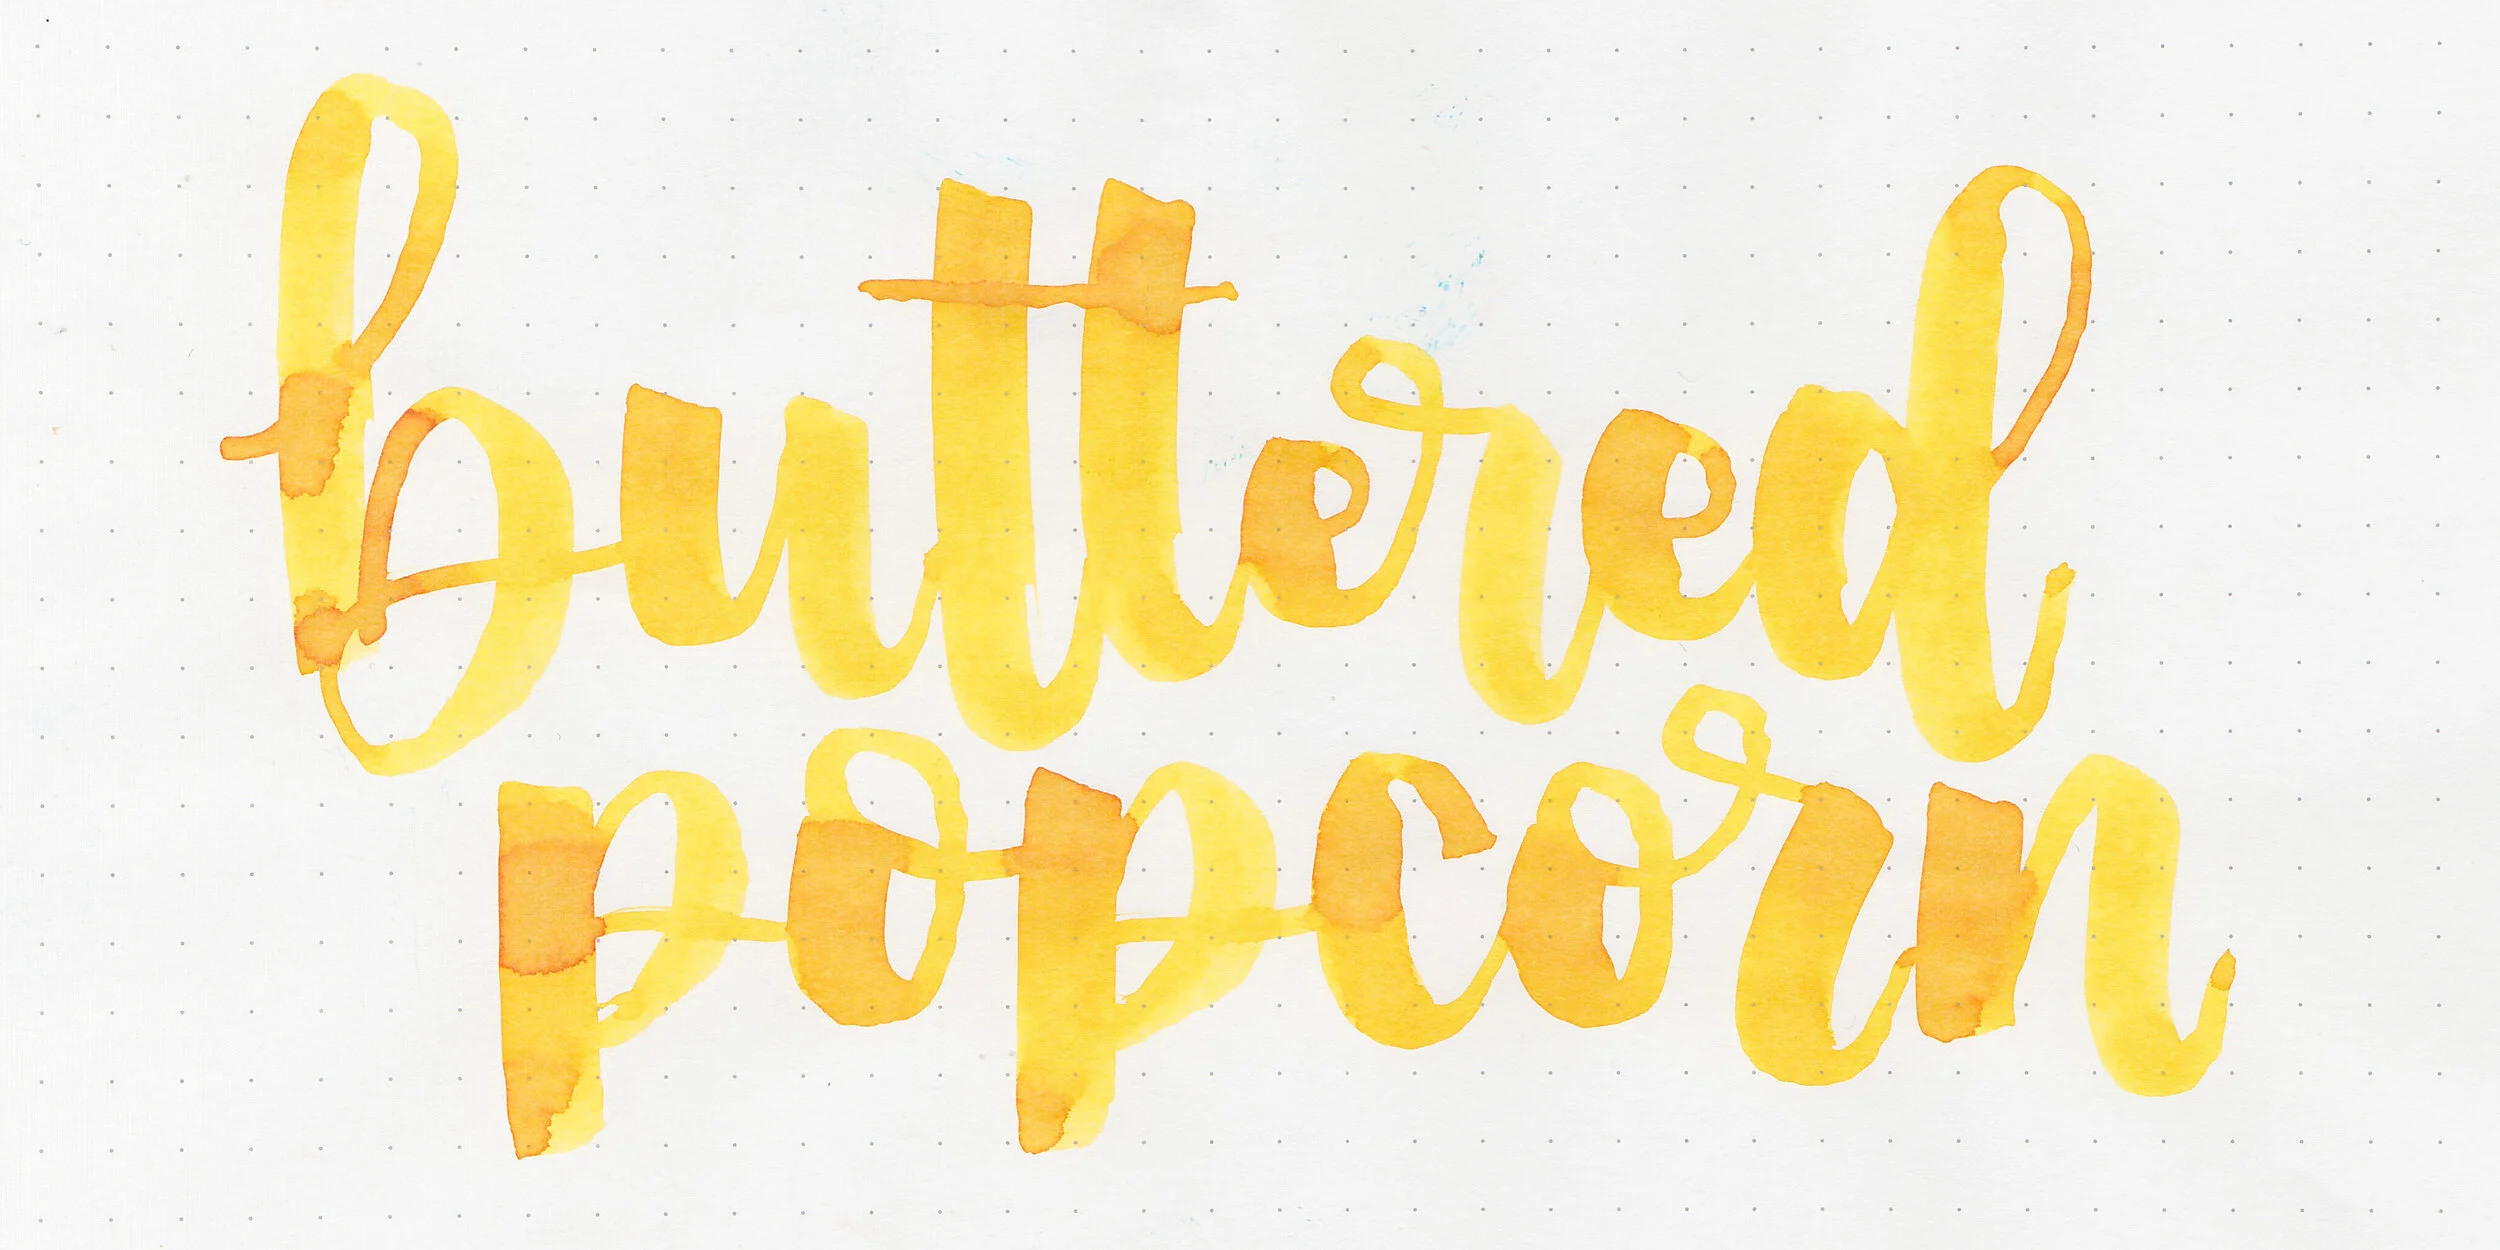 buttered
popcorn